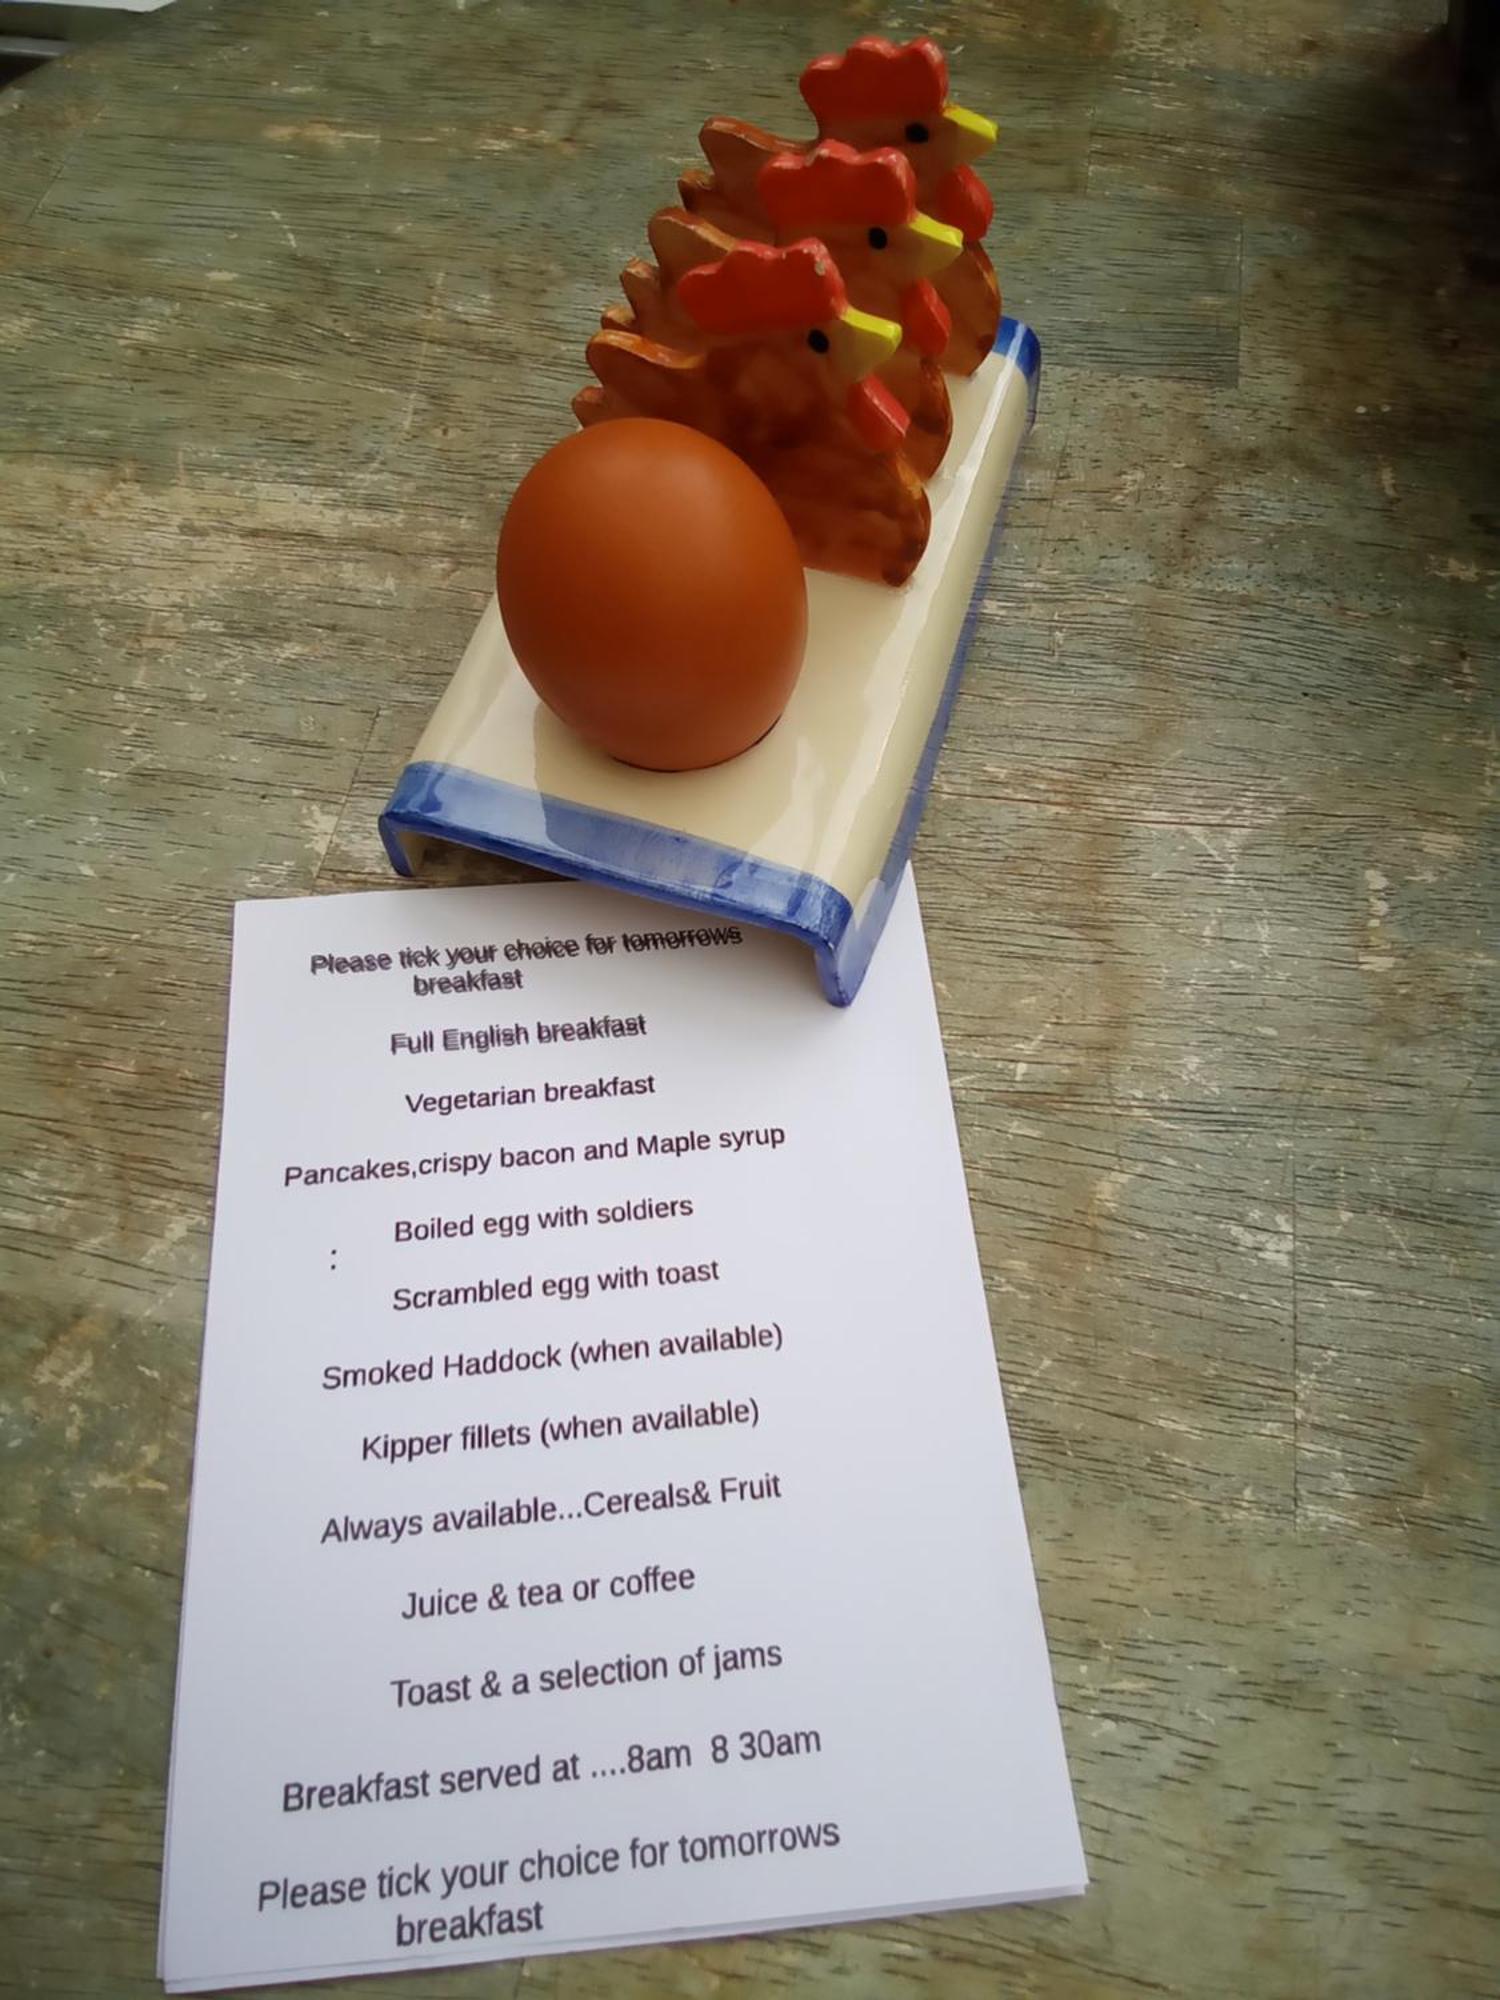 Please tick your choice for tomorrows
breakfast
Full English breakfast
Vegetarian breakfast
Pancakes,crispy bacon and Maple syrup
Boiled egg with soldiers
:
Scrambled egg with toast
Smoked Haddock (when available)
Kipper fillets (when available)
Always available...Cereals& Fruit
Juice & tea or coffee
Toast & a selection of jams
Breakfast served at ....8am  8 30am
Please tick your choice for tomorrows
breakfast